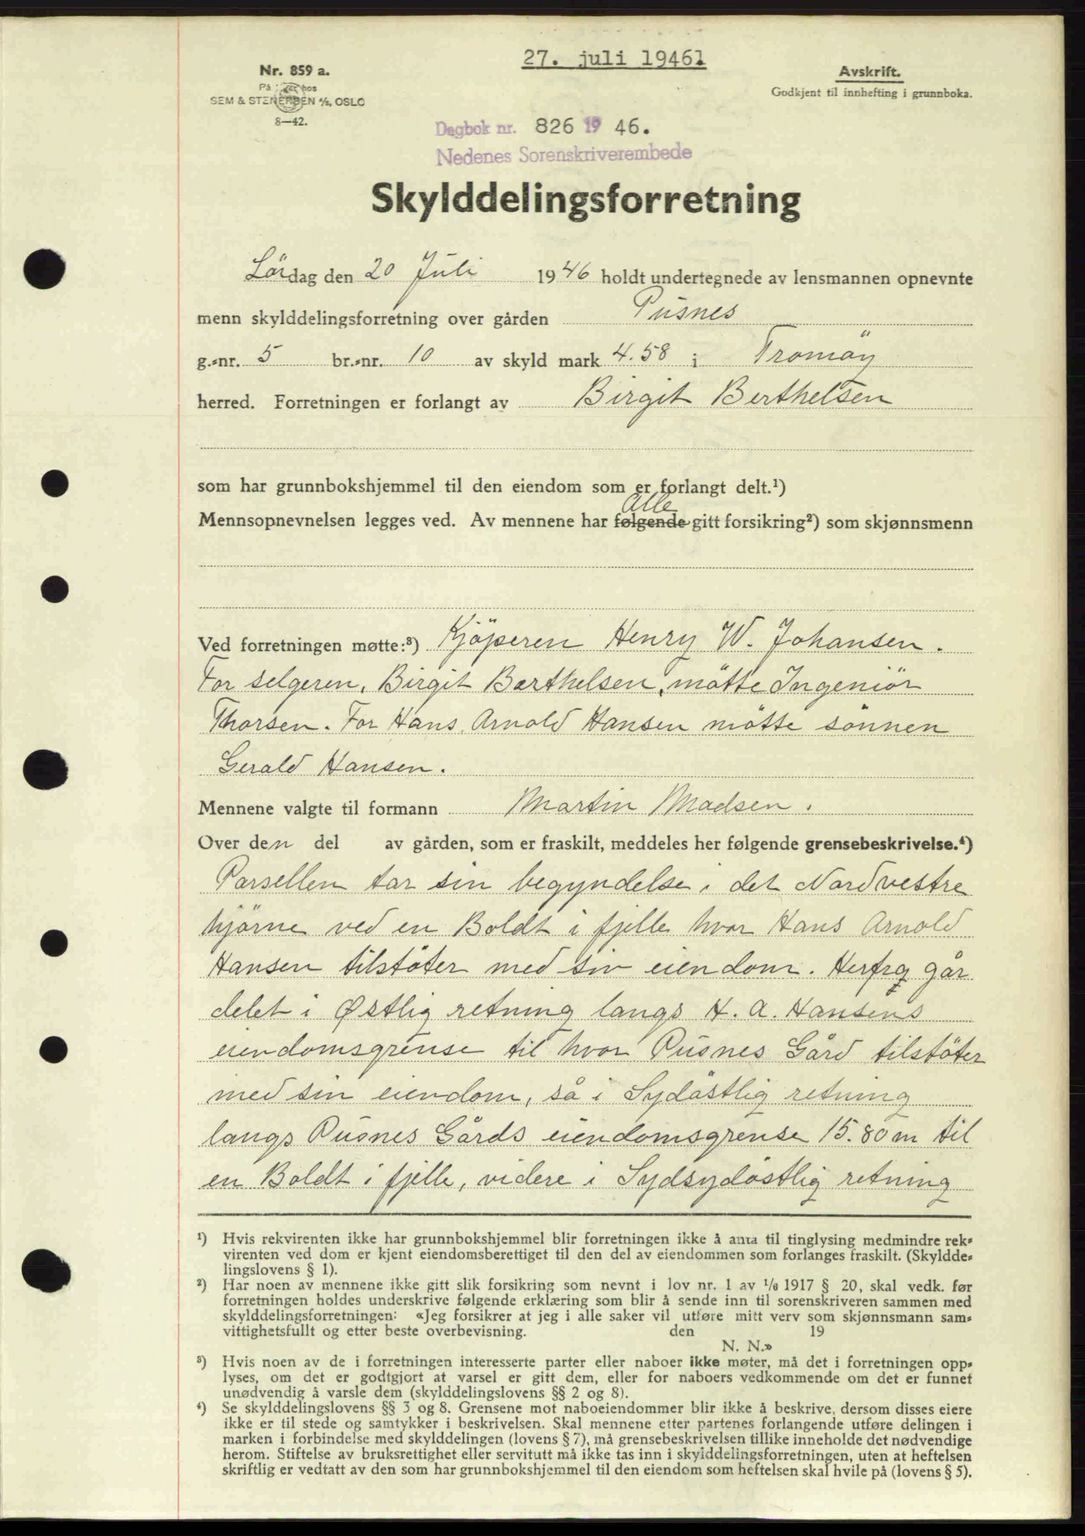 27. juli 19461
Nr. 859 a.
På lager hos
SEM & STENERSEN A/S, OSLO
8—42.
Avskrift.
Godkjent til innhefting i grunnboka.
Dagbok nr. 826 1946.
Nedenes Sorenskriverembede
Skylddelingsforretning
Lördag den 20 Juli 1946 holdt undertegnede av lensmannen opnevnte
menn skylddelingsforretning over gården Pusnes
g.-nr. 5 br.-nr. 10 av skyld mark 4.58 i Tromöy
herred. Forretningen er forlangt av Birgit Berthelsen
som har grunnbokshjemmel til den eiendom som er forlangt delt.¹)
Alle
Mennsopnevnelsen legges ved. Av mennene har følgende gitt forsikring²) som skjønnsmenn
Ved forretningen møtte:³) Kjöperen Henry W. Johansen.
For selgeren, Birgit Berthelsen, mötte Ingeniör
Thorsen. For Hans Arnold Hansen mötte sönnen
Gerald Hansen.
Mennene valgte til formann Martin Madsen.
Over den del av gården, som er fraskilt, meddeles her følgende grensebeskrivelse.⁴)
Parsellen tar sin begyndelse i det Nordvestre
hjörne ved en Boldt i fjelle hvor Hans Arnold
Hansen tilstöter med sin eiendom. Herfra går
delet i Østlig retning langs H. A. Hansens
eiendomsgrense til hvor Pusnes Gård tilstöter
med sin eiendom, så i Sydöstlig retning
langs Pusnes Gårds eiendomsgrense 15.80 m til
en Boldt i fjelle, videre i Sydsydöstlig retning
¹) Hvis rekvirenten ikke har grunnbokshjemmel blir forretningen ikke å anta til tinglysing medmindre rek-
virenten ved dom er kjent eiendomsberettiget til den del av eiendommen som forlanges fraskilt. (Skyldde-
lingslovens § 1).
²) Har noen av mennene ikke gitt slik forsikring som nevnt i lov nr. 1 av 1/6 1917 § 20, skal vedk. før
forretningen holdes underskrive følgende erklæring som blir å sende inn til sorenskriveren sammen med
skylddelingsforretningen: «Jeg forsikrer at jeg i alle saker vil utføre mitt verv som skjønnsmann sam-
vittighetsfullt og etter beste overbevisning. den 19
N. N.»
³) Hvis noen av de i forretningen interesserte parter eller naboer ikke møter, må det i forretningen opp-
lyses, om det er godtgjort at varsel er gitt dem, eller for naboers vedkommende om det er funnet
unødvendig å varsle dem (skylddelingslovens §§ 2 og 8).
⁴) Se skylddelingslovens §§ 3 og 8. Grensene mot naboeiendommer blir ikke å beskrive, dersom disses eiere
ikke er til stede og samtykker i beskrivelsen. Skal mennene etter partenes forlangende utføre delingen i
marken i forbindelse med skylddelingen (lovens § 7), må grensebeskrivelsen tillike inneholde det nødvendige
herom. Stiftelse av bruksrettighet eller servitutt må ikke tas inn i skylddelingsforretningen, uten at heftelsen
skriftlig er vedtatt av den som har grunnbokshjemmel til den eiendom som heftelsen skal hvile på (lovens § 5).